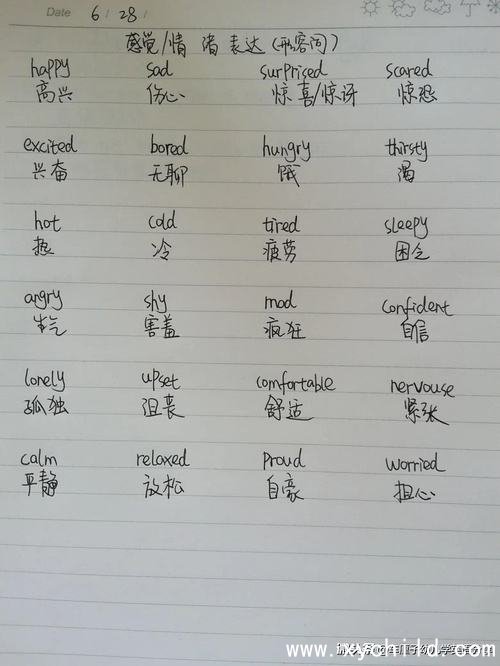 Date 6 / 28 /
感觉/情绪表达(形容词)
happy sad surprised scared
高兴 伤心 惊喜/惊讶 惊恐
excited bored hungry thirsty
兴奋 无聊 饿 渴
hot cold tired sleepy
热 冷 疲劳 困乏
angry shy mad confident
生气 害羞 疯狂 自信
lonely upset comfortable nervouse
孤独 沮丧 舒适 紧张
calm relaxed proud worried
平静 放松 自豪 担心
www.ixychild.com